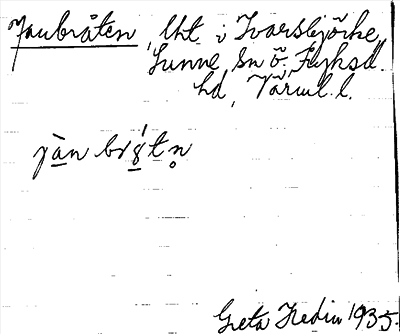 Janbråten, lht i Ivarsbjörke,
Sunne sn Ö. Fryksd.
hd, Värml. l.
jàn brǻtn̥
Greta Hedin 1935.